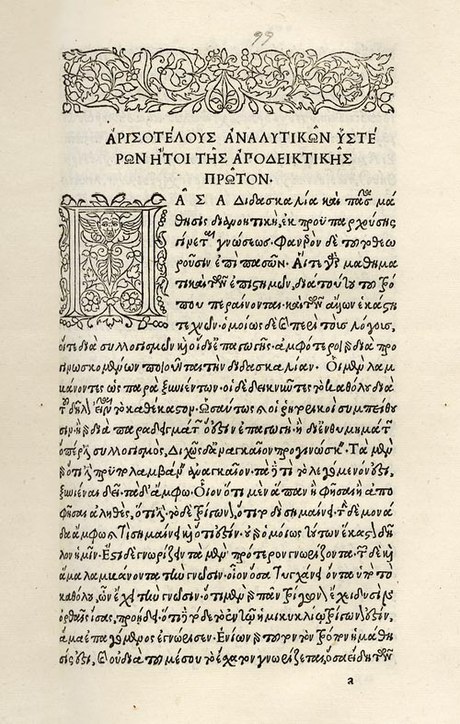 99
ἈΡΙΣΟΤΈΛΟΥΣ ἈΝΑΛΥΤΙΚΩ͂Ν ὙΣΤΈ
ΡΩΝ ἬΤΟΙ ΤΗ͂Σ ἈΠΟΔΕΙΚΤΙΚΗ͂Σ
ΠΡΩ͂ΤΟΝ.
ΠΑΣΑ διδασκαλία καὶ πᾶσα μά
θησις διανοητικὴ, ἐκ προϋπαρχούσης
γίνεται γνώσεως. Φανερὸν δὲ τοῦτο θεω
ροῦσιν ἐπὶ πασῶν. Αἵ τε γὰρ μαθημα
τικαὶ τῶν ἐπιστημῶν, διὰ τούτου τοῦ τρό
που περαίνονται. καὶ τῶν ἄλλων ἑκάστη
τεχνῶν. ὁμοίως δὲ καὶ περὶ τοὺς λόγους,
οἵ τε διὰ συλλογισμῶν καὶ οἱ δι' ἐπαγωγῆς. ἀμφότεροι γὰρ διὰ προ
γινωσκομένων ποιοῦνται τὴν διδασκαλίαν. Οἱ μὲν λαμ
βάνοντες ὡς παρὰ ξυνιέντων. οἱ δὲ δεικνύντες τὸ καθόλου διὰ
τοῦ δῆλον εἶναι τὸ καθ' ἕκαστον. Ὡσαύτως δὲ καὶ οἱ ῥητορικοὶ συμπείθου
σιν. ἢ γὰρ διὰ παραδειγμάτων ὅ ἐστιν ἐπαγωγὴ. ἢ δι' ἐνθυμημάτων
ὅπερ ἐστὶ συλλογισμός. Διχῶς δ' ἀναγκαῖον προγινώσκειν. Τὰ μὲν
γὰρ ὅτι ἔστι προϋπολαμβάνειν ἀναγκαῖον. τὰ δὲ τί τὸ λεγόμενον ἐστι,
ξυνιέναι δεῖ. τὰ δ' ἄμφω. Οἷον ὅτι μὲν ἅπαν ἢ φῆσαι ἢ ἀπο
φῆσαι ἀληθὲς, ὅτι ἔστι. τὸ δὲ τρίγωνον, ὅτι τοδὶ σημαίνει. τὴν δὲ μονά
δα ἄμφω. καὶ τί σημαίνει καὶ ὅτι ἔστιν. οὐ γὰρ ὁμοίως τούτων ἕκαστον δῆ
λον ἡμῖν. Ἔστι δὲ γνωρίζειν τὰ μὲν πρότερον γνωρίζοντα. τῶν δὲ καὶ
ἅμα λαμβάνοντα τὴν γνῶσιν. οἷον ὅσα τυγχάνει ὄντα ὑπὸ τὸ
καθόλου, ὧν ἔχει τὴν γνῶσιν. ὅτι μὲν γὰρ πᾶν τρίγωνον ἔχει δυσὶν
ὀρθαῖς ἴσας, προῄδει. ὅτι δὲ τόδε τὸ ἐν τῷ ἡμικυκλίῳ τρίγωνον ἐστιν,
ἅμα ἐπαγόμενος ἐγνώρισεν. Ἐνίων γὰρ τοῦτον τὸν τρόπον ἡ μάθη
σίς ἐστι, καὶ οὐ διὰ τοῦ μέσου τὸ ἔσχατον γνωρίζεται, ὅσα ἤδη τῶν
a